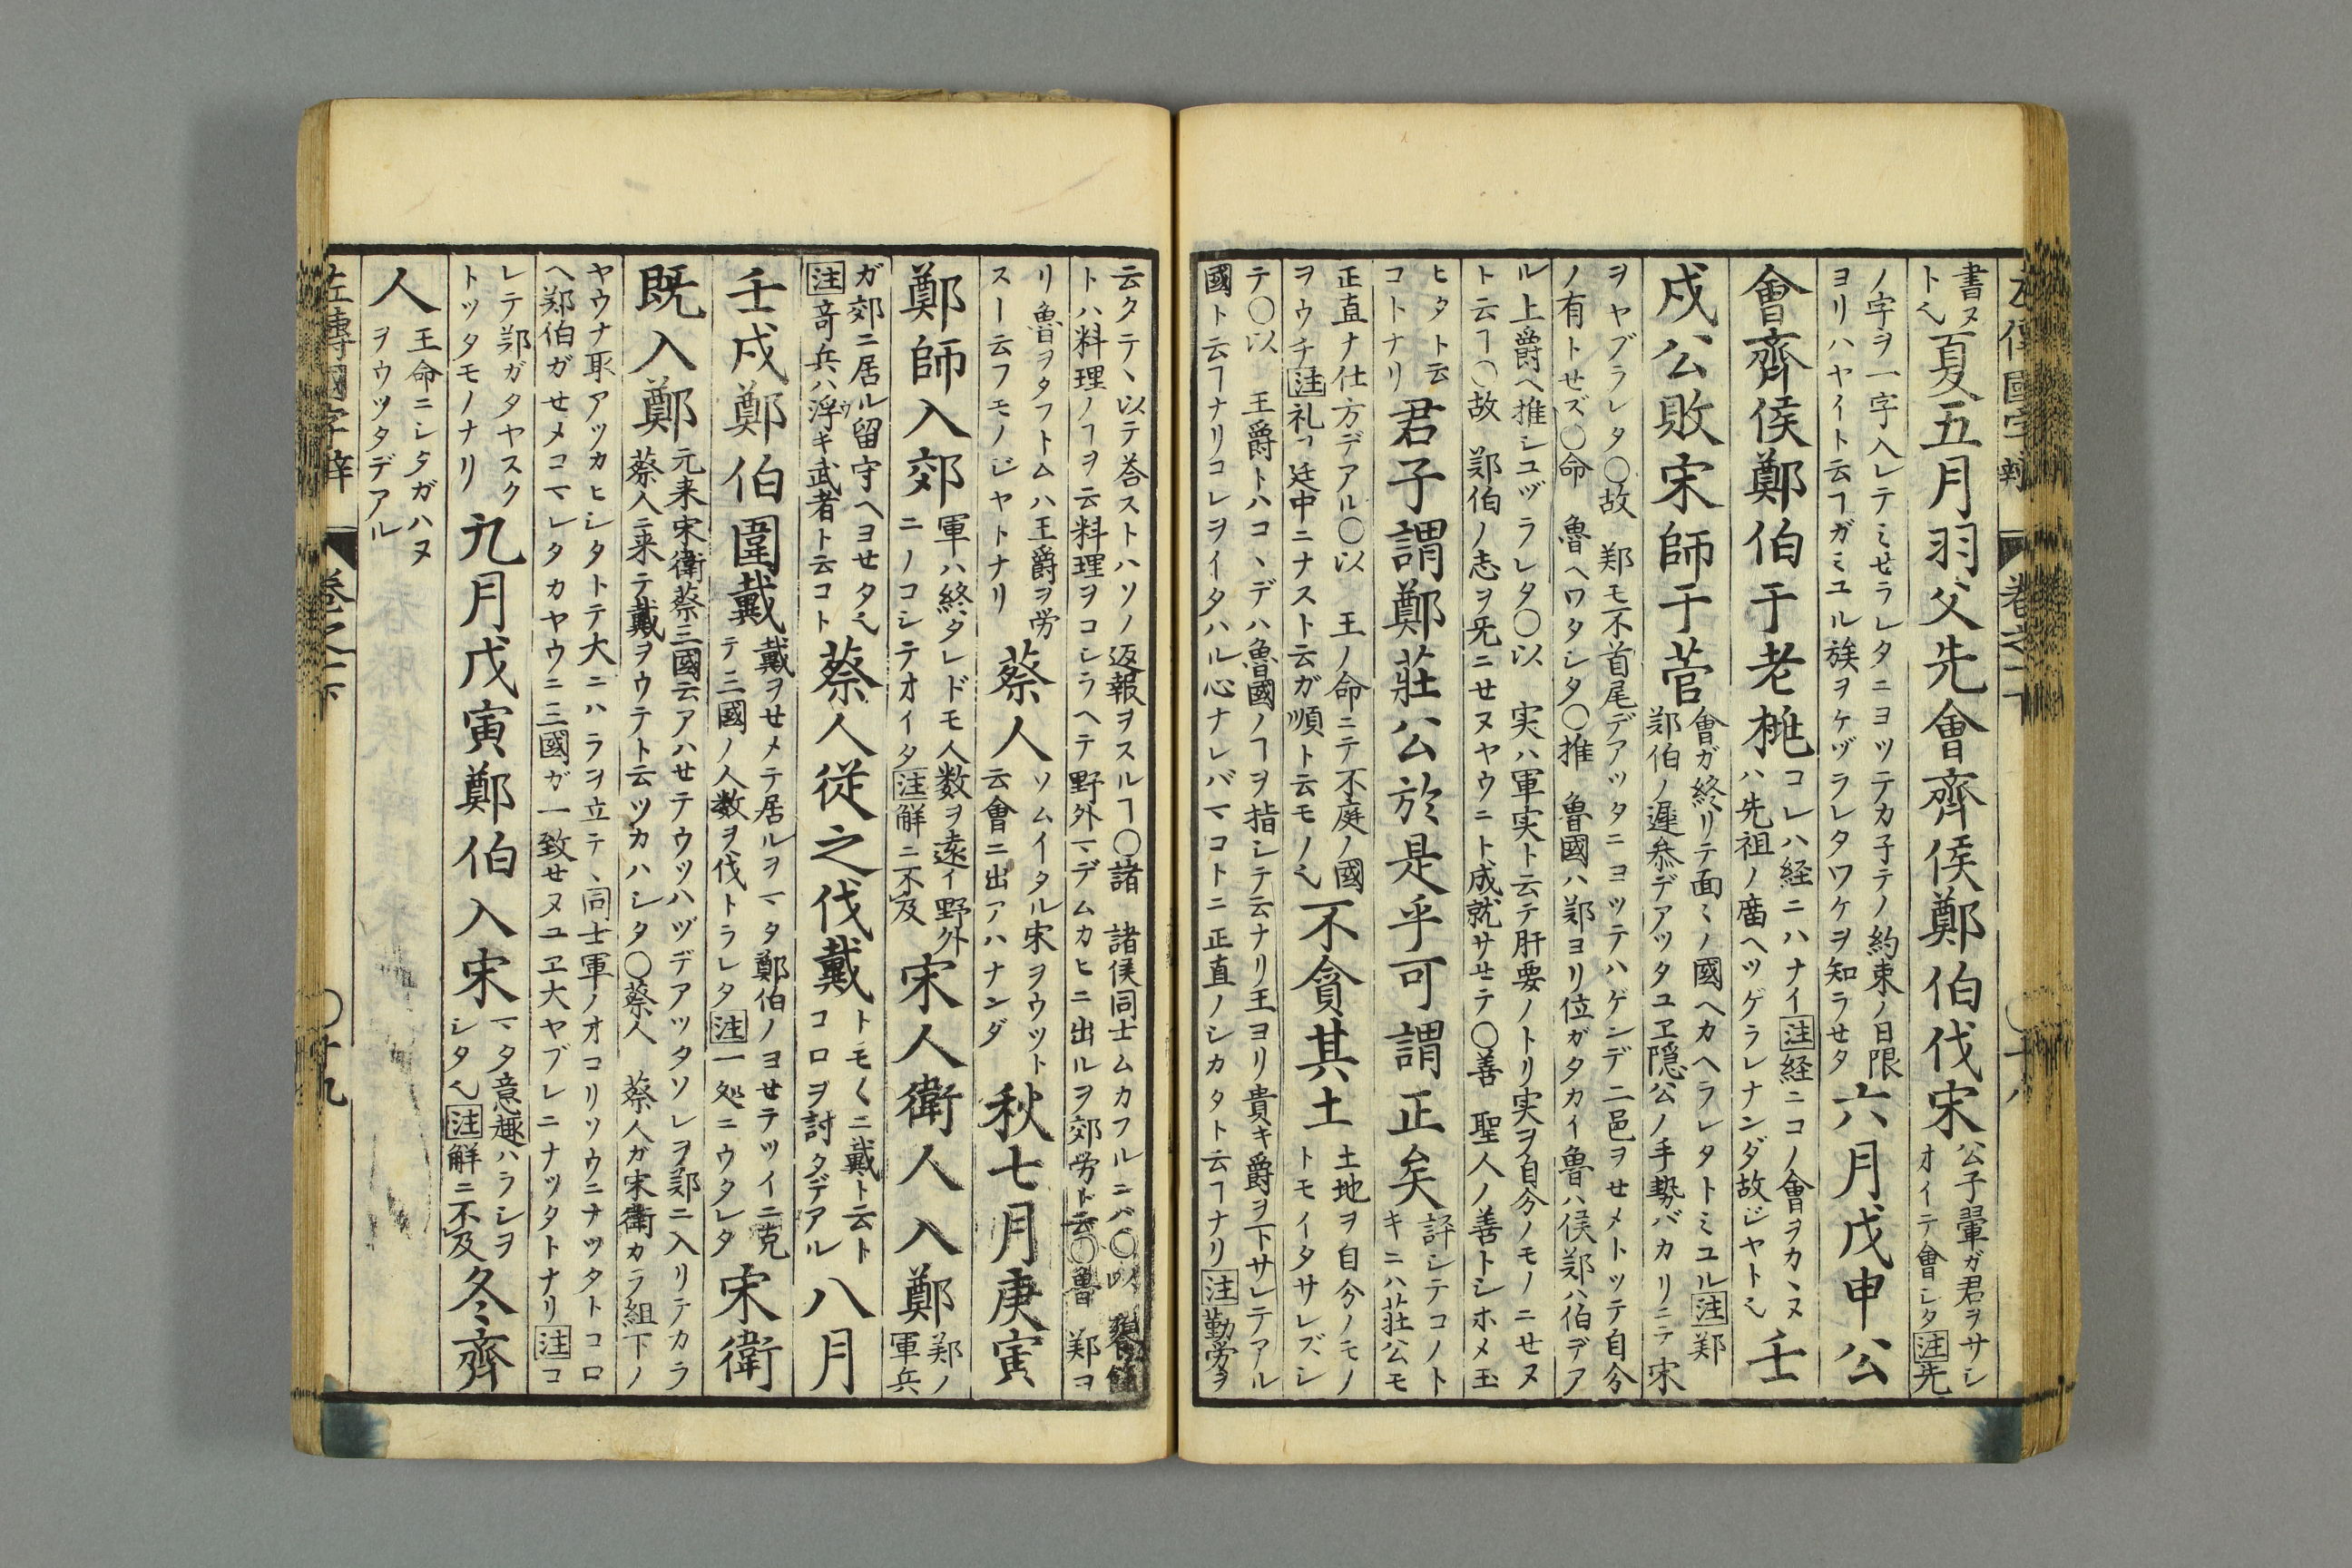 左傳國字辯 卷之一下 〇十八
書ヌト也夏五月羽父先會齊侯鄭伯伐宋公子翬ガ君ヲサシオイテ會シタ注先
ノ字ヲ一字入レテミセラレタニヨツテカ子テノ約束ノ日限ヨリハヤイト云ヿガミユル族ヲケヅラレタワケヲ知ラセタ六月戊申公
會齊侯鄭伯于老桃コレハ経ニハナイ注経ニコノ會ヲカヽヌハ先祖ノ廟ヘツゲラレナンダ故ジヤト也壬
戌公敗宋師于菅會ガ終リテ面〻ノ國ヘカヘラレタトミユル注郑郑伯ノ遲参デアツタユヱ隠公ノ手勢バカリニテ宋
ヲヤブラレタ〇故 郑モ不首尾デアツタニヨツテハゲンデ二邑ヲセメトツテ自分
ノ有トセズ〇命 魯ヘワタシタ〇推 魯國ハ郑ヨリ位ガタカイ魯ハ侯郑ハ伯デア
ル上爵ヘ推シユヅラレタ〇以 実ハ軍実ト云テ肝要ノトリ実ヲ自分ノモノニセヌ
ト云ヿ〇故 郑伯ノ志ヲ旡ニセヌヤウニト成就サセテ〇善 聖人ノ善トシホメ玉
ヒタト云コトナリ君子謂鄭莊公於是乎可謂正矣評シテコノトキニハ莊公モ
正直ナ仕方デアル〇以 王ノ命ニテ不庭ノ國ヲウチ注礼ヿ廷中ニナスト云ガ順ト云モノ也不貪其土土地ヲ自分ノモノトモイタサレズシ
テ〇以 王爵トハコヽデハ魯國ノヿヲ指シテ云ナリ王ヨリ貴キ爵ヲ下サレテアル
國ト云ヿナリコレヲイタハル心ナレバマコトニ正直ノシカタト云ヿナリ注勤労ヲ
云タテヽ以テ荅ストハソノ返報ヲスルヿ〇諸 諸侯同士ムカフルニハ〇以 饔餼
トハ料理ノヿヲ云料理ヲコシラヘテ野外マデムカヒニ出ルヲ郊労ト云〇魯 郑コ
リ魯ヲタフトムハ王爵ヲ労スート云フモノジヤトナリ蔡人ソムイタル宋ヲウツト云會ニ出アハナンダ秋七月庚寅
鄭師入郊軍ハ終タレドモ人数ヲ遠イ野外ニノコシテオイタ注解ニ不及宋人衛人入鄭郑ノ軍兵
ガ郊ニ居ル留守ヘヨセタ也注竒兵ハ浮キ武者ト云コト蔡人従之伐戴トモ〱ニ戴ト云トコロヲ討タデアル八月
壬戌鄭伯圍戴戴ヲセメテ居ルヲマタ鄭伯ノヨセテツイニ克テ三國ノ人数ヲ伐トラレタ注一処ニウタレタ宋衛
既入鄭元来宋衛蔡三國云アハセテウツハヅデアツタソレヲ郑ニ入リテカラ蔡人ニ来テ戴ヲウテト云ツカハシタ〇蔡人 蔡人ガ宋衛カラ組下ノ
ヤウナ取アツカヒシタトテ大ニハラヲ立テヽ同士軍ノオコリソウニナツタトコロ
ヘ郑伯ガセメコマレタカヤウニ三國ガ一致セヌユヱ大ヤブレニナツタトナリ注コ
レテ郑ガタヤスクトツタモノナリ九月戊寅鄭伯入宋マタ意趣ハラシヲシタ也注解ニ不及冬齊
人王命ニシタガハヌヲウツタデアル
左傳國字辯 卷之一下 〇十九